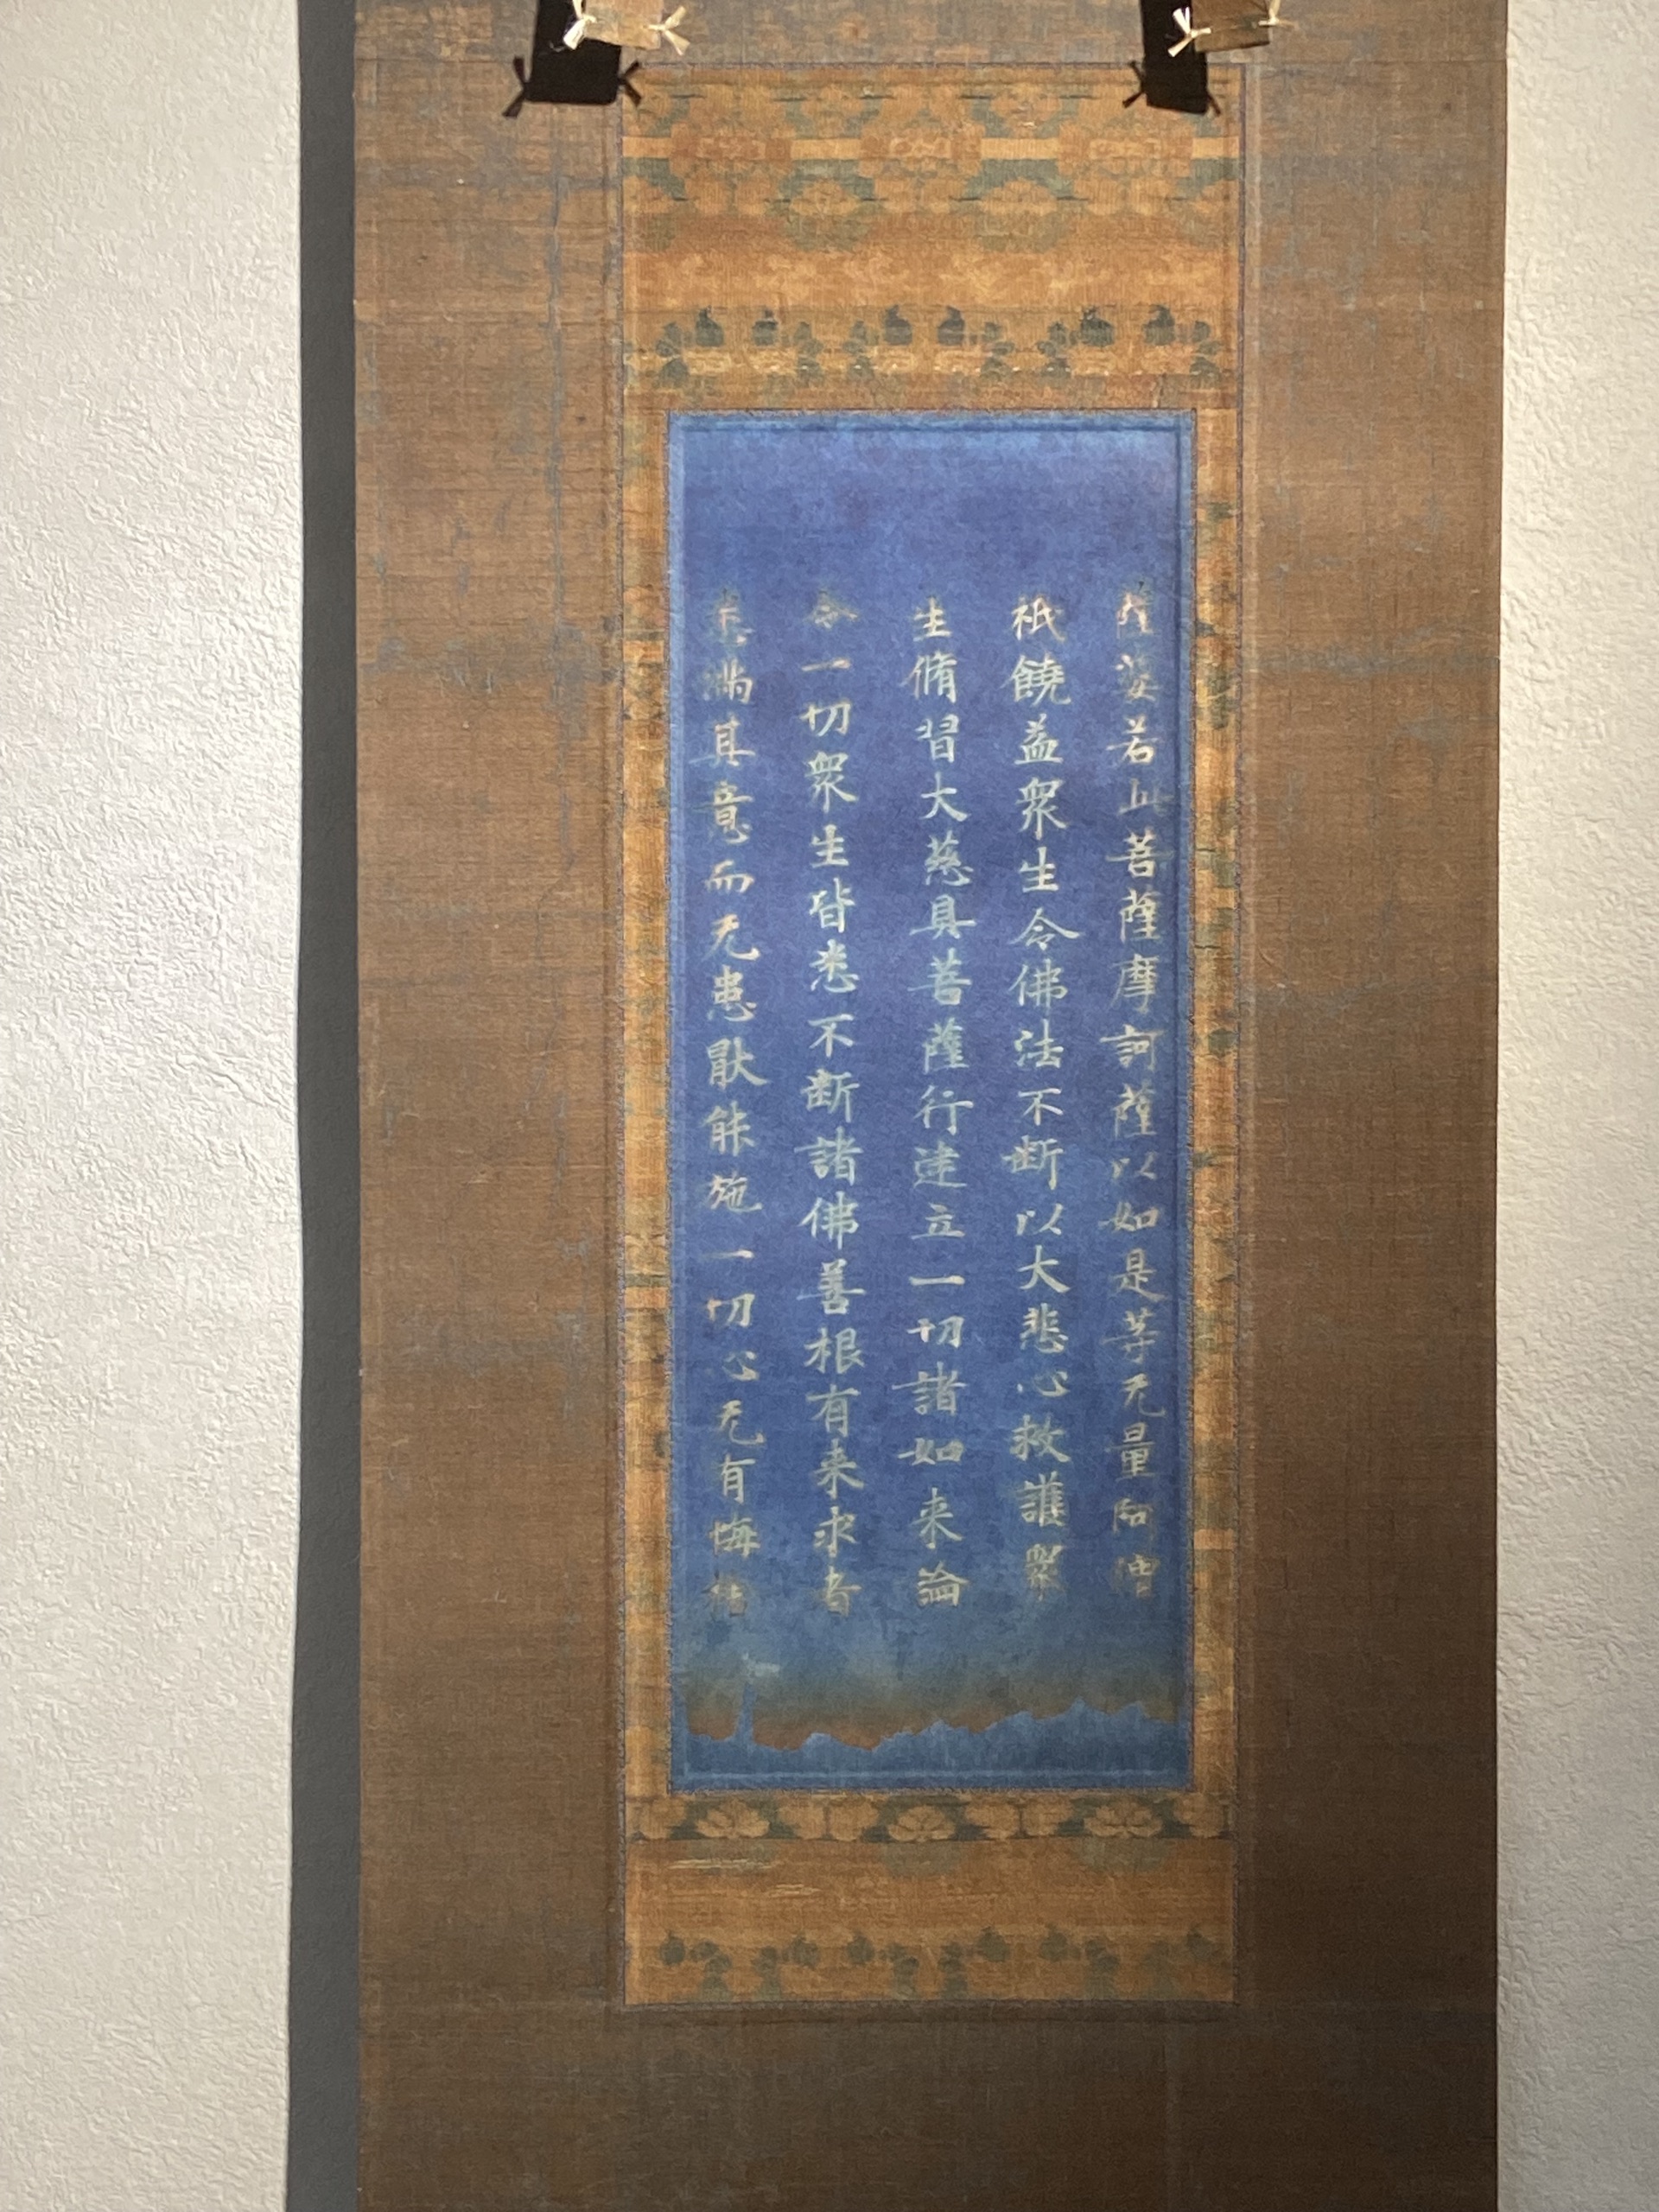 薩婆若此菩薩摩訶薩以如是等无量阿僧
祇饒益衆生令佛法不断以大悲心救護衆
生脩習大慈具菩薩行建立一切諸如来論
令一切衆生皆悉不断諸佛善根有来求者
悉滿其意而无患猒能施一切心无有悔